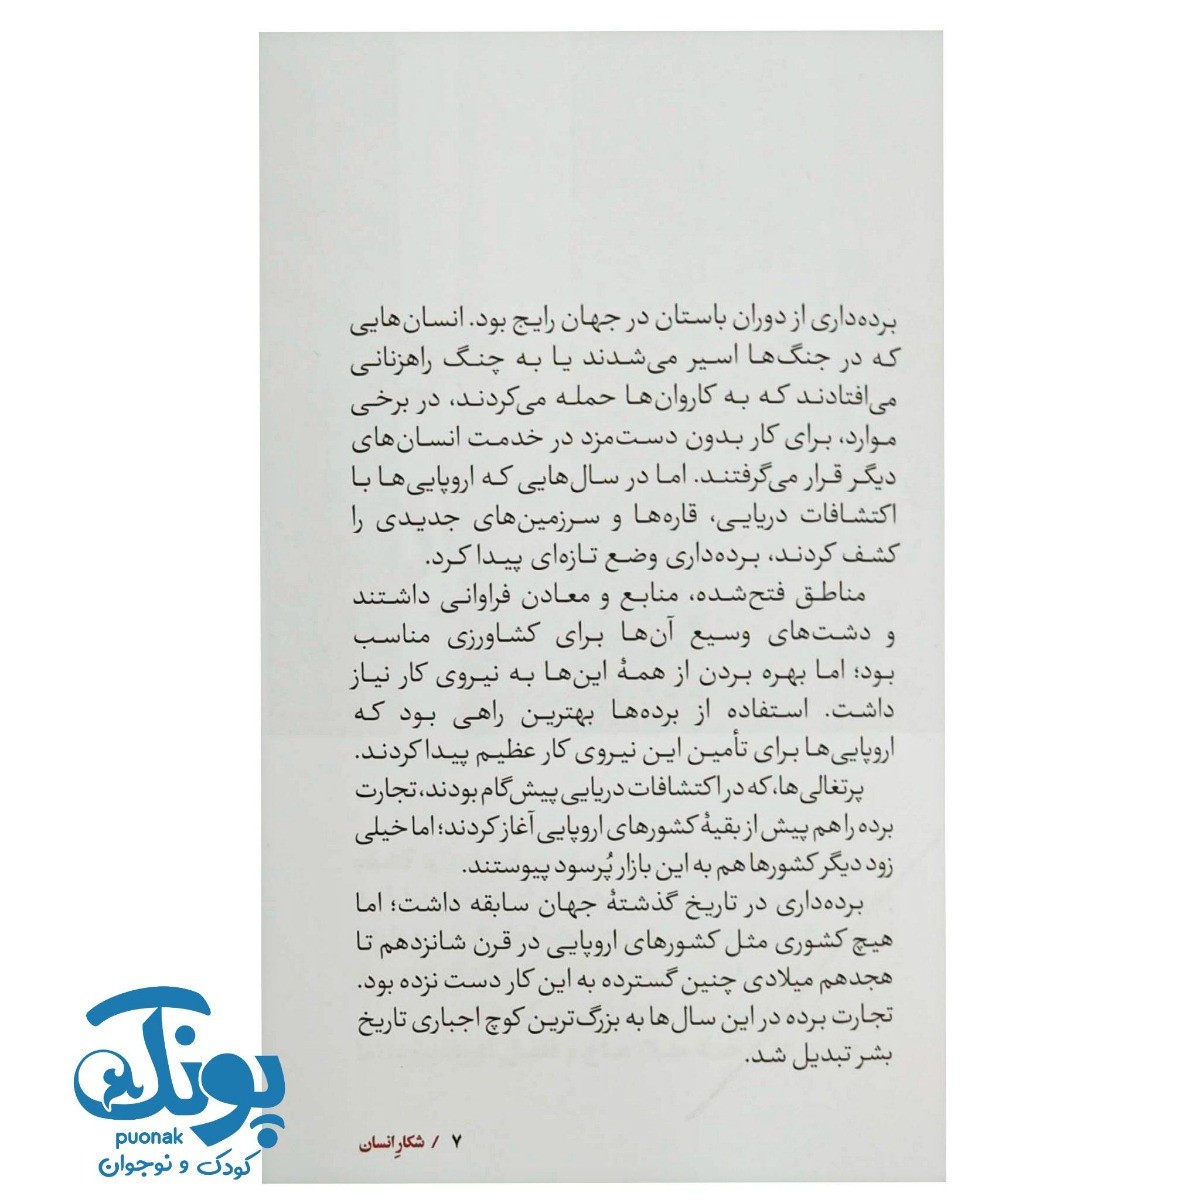 برده‌داری از دوران باستان در جهان رایج بود. انسان‌هایی
که در جنگ‌ها اسیر می‌شدند یا به چنگ راهزنانی
می‌افتادند که به کاروان‌ها حمله می‌کردند، در برخی
موارد، برای کار بدون دست‌مزد در خدمت انسان‌های
دیگر قرار می‌گرفتند. اما در سال‌هایی که اروپایی‌ها با
اکتشافات دریایی، قاره‌ها و سرزمین‌های جدیدی را
کشف کردند، برده‌داری وضع تازه‌ای پیدا کرد.
مناطق فتح‌شده، منابع و معادن فراوانی داشتند
و دشت‌های وسیع آن‌ها برای کشاورزی مناسب
بود؛ اما بهره بردن از همهٔ این‌ها به نیروی کار نیاز
داشت. استفاده از برده‌ها بهترین راهی بود که
اروپایی‌ها برای تأمین این نیروی کار عظیم پیدا کردند.
پرتغالی‌ها، که در اکتشافات دریایی پیش‌گام بودند، تجارت
برده را هم پیش از بقیهٔ کشورهای اروپایی آغاز کردند؛ اما خیلی
زود دیگر کشورها هم به این بازار پُرسود پیوستند.
برده‌داری در تاریخ گذشتهٔ جهان سابقه داشت؛ اما
هیچ کشوری مثل کشورهای اروپایی در قرن شانزدهم تا
هجدهم میلادی چنین گسترده به این کار دست نزده بود.
تجارت برده در این سال‌ها به بزرگ‌ترین کوچ اجباری تاریخ
بشر تبدیل شد.
۷ / شکارِ انسان
پونک
puonak
کودک و نوجوان